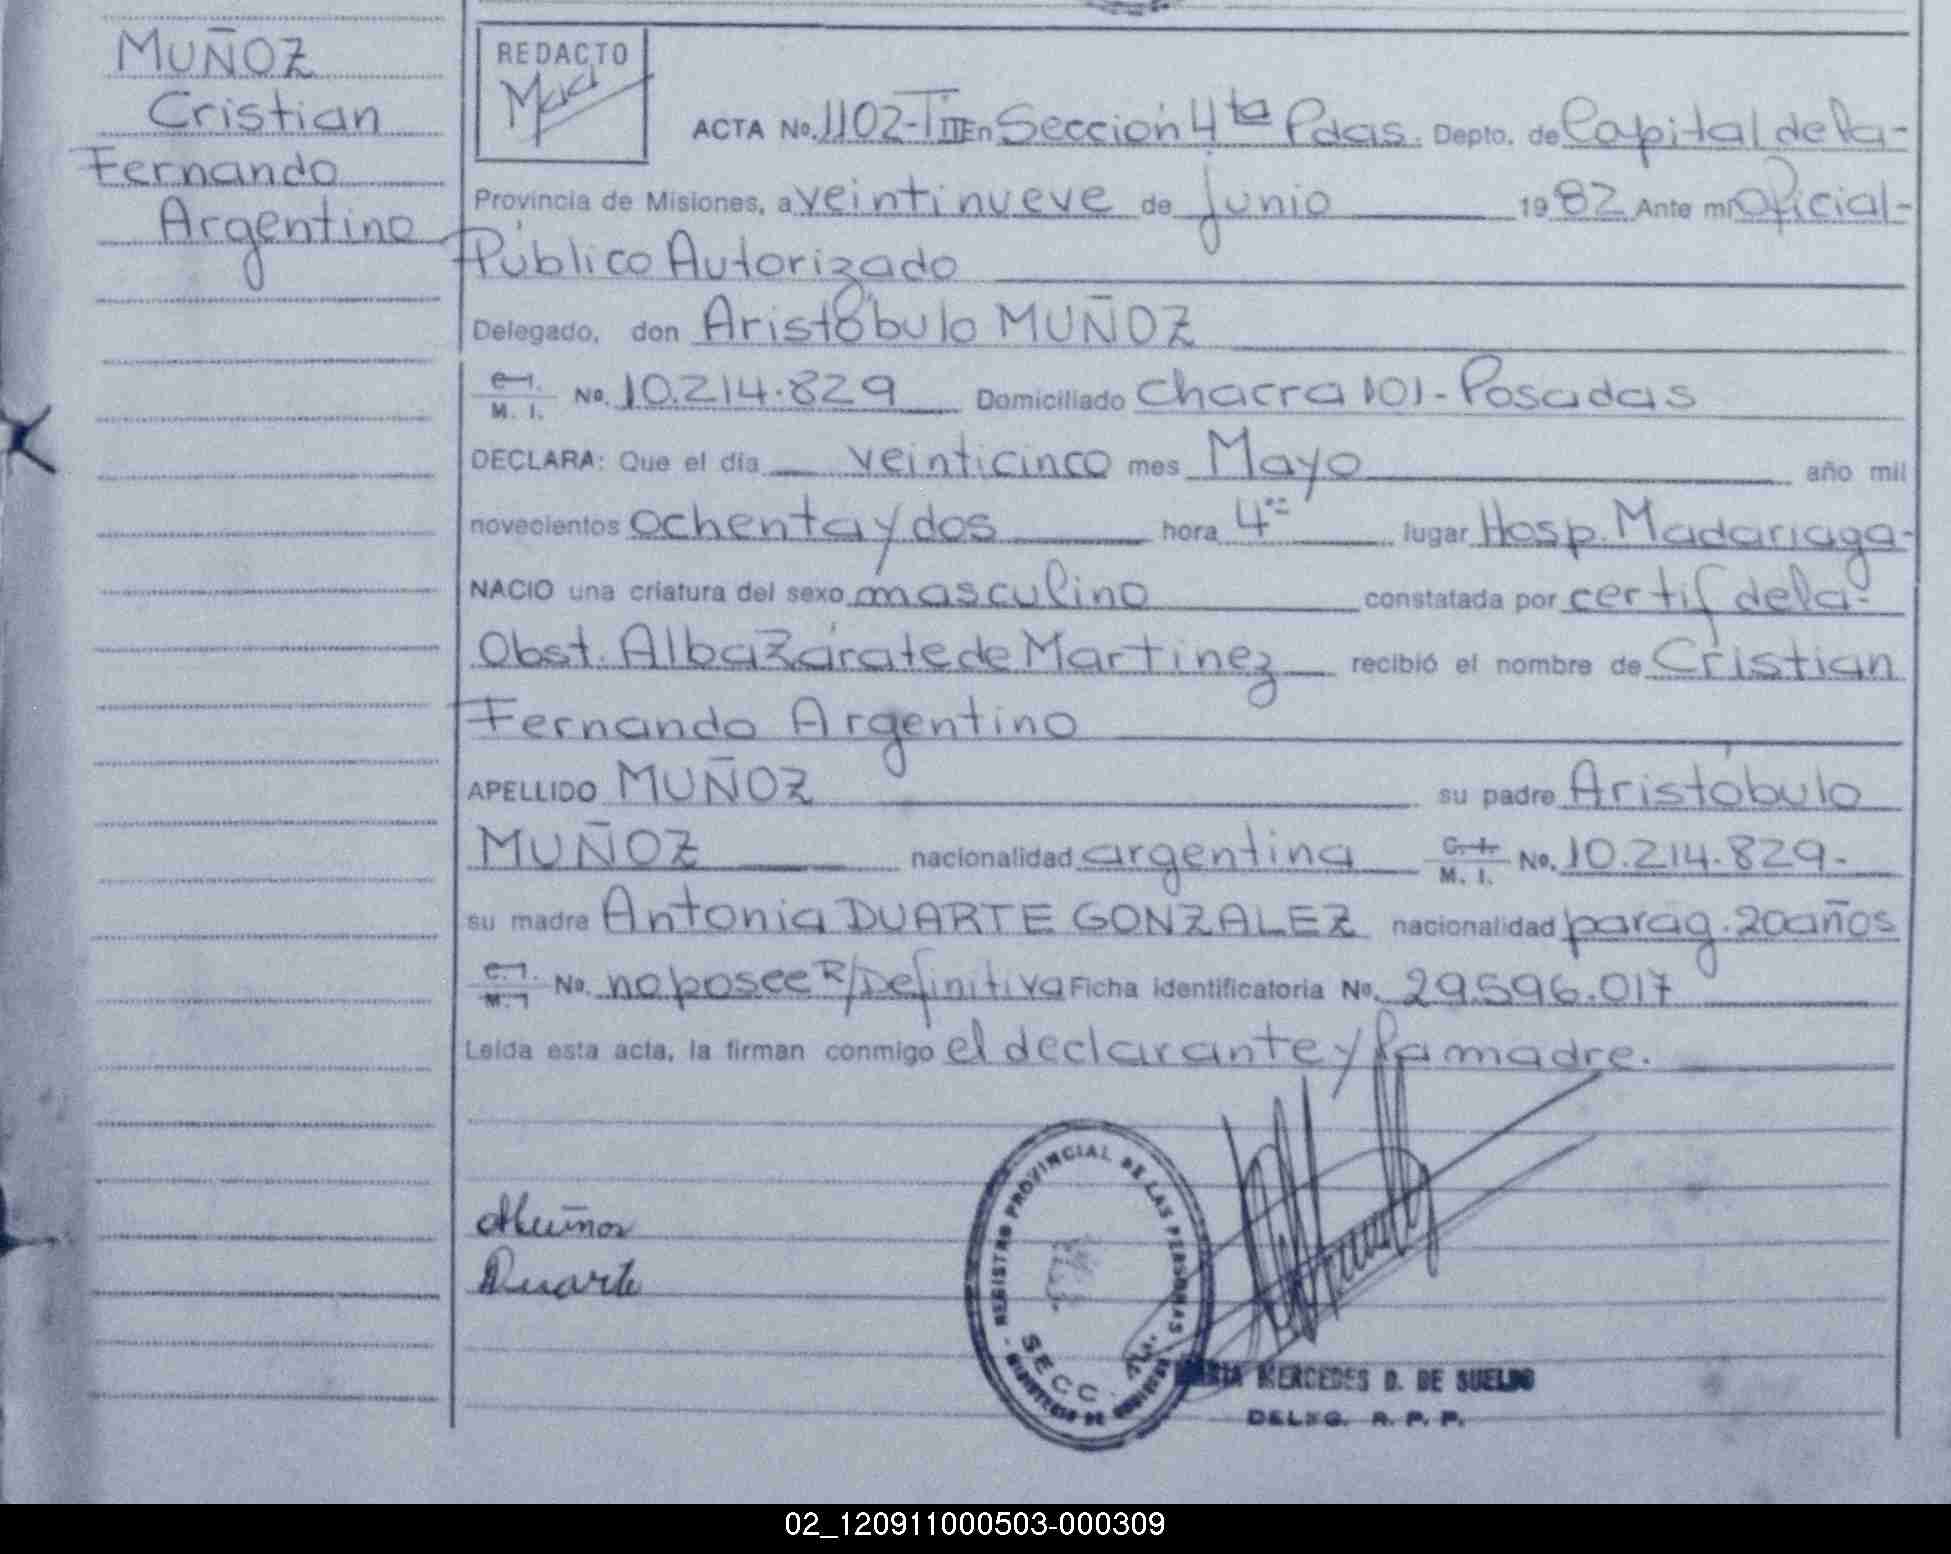 MUÑOZ
Cristian
Fernando
Argentino
REDACTO
ACTA No. 1102-TIII En Sección 4ta Pdas. Depto. de Capital de la-
Provincia de Misiones, a veintinueve de junio 1982 Ante mi oficial-
Público Autorizado
Delegado, don Aristóbulo MUÑOZ
C.I. M. I. No. 10.214.829 Domiciliado Chacra 101-Posadas
DECLARA: Que el día veinticinco mes Mayo año mil
novecientos ochenta y dos hora 4 lugar Hosp. Madariaga-
NACIO una criatura del sexo masculino constatada por certif de la-
Obst. Alba Zárate de Martinez recibió el nombre de Cristian
Fernando Argentino
APELLIDO MUÑOZ su padre Aristóbulo
MUÑOZ nacionalidad argentina C.I. M. I. No. 10.214.829-
su madre Antonia DUARTE GONZALEZ nacionalidad parag. 20 años
C.I. M.I. No. no posee R/Definitiva Ficha identificatoria No. 29.596.017
Leída esta acta, la firman conmigo el declarante y la madre.
AMuñoz
Duarte
REGISTRO PROVINCIAL DE LAS PERSONAS
SECC. 4ta.
MINISTERIO DE GOBIERNO
MARIA MERCEDES D. DE SUELDO
DELEG. R. P. P.
02_120911000503-000309